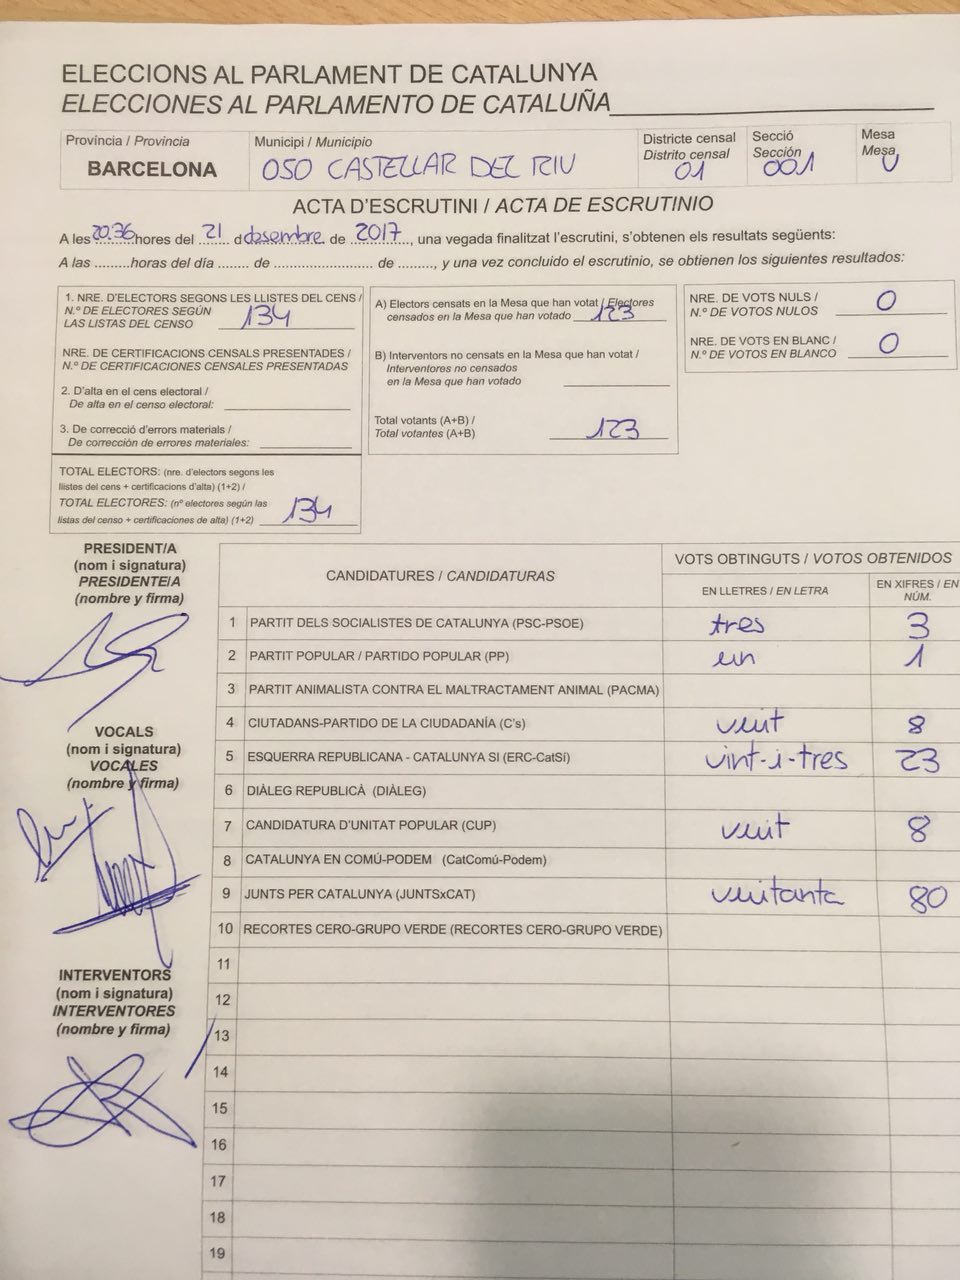 ELECCIONS AL PARLAMENT DE CATALUNYA
ELECCIONES AL PARLAMENTO DE CATALUÑA
Província / Provincia
BARCELONA
Municipi / Municipio
050 CASTELLAR DEL RIU
Districte censal
Distrito censal
01
Secció
Sección
001
Mesa
Mesa
U
ACTA D'ESCRUTINI / ACTA DE ESCRUTINIO
A les 20:36 hores del 21 d desembre de 2017, una vegada finalitzat l'escrutini, s'obtenen els resultats següents:
A las .........horas del día ....... de ...................... de ........, y una vez concluido el escrutinio, se obtienen los siguientes resultados:
1. NRE. D'ELECTORS SEGONS LES LLISTES DEL CENS /
N.º DE ELECTORES SEGÚN
LAS LISTAS DEL CENSO 134
NRE. DE CERTIFICACIONS CENSALS PRESENTADES /
N.º DE CERTIFICACIONES CENSALES PRESENTADAS
2. D'alta en el cens electoral /
De alta en el censo electoral:
3. De correcció d'errors materials /
De corrección de errores materiales:
TOTAL ELECTORS: (nre. d'electors segons les
llistes del cens + certificacions d'alta) (1+2) /
TOTAL ELECTORES: (nº electores según las
listas del censo + certificaciones de alta) (1+2) 134
A) Electors censats en la Mesa que han votat / Electores
censados en la Mesa que han votado 123
B) Interventors no censats en la Mesa que han votat /
Interventores no censados
en la Mesa que han votado
Total votants (A+B) /
Total votantes (A+B) 123
NRE. DE VOTS NULS /
N.º DE VOTOS NULOS 0
NRE. DE VOTS EN BLANC /
N.º DE VOTOS EN BLANCO 0
PRESIDENT/A
(nom i signatura)
PRESIDENTE/A
(nombre y firma)
VOCALS
(nom i signatura)
VOCALES
(nombre y firma)
INTERVENTORS
(nom i signatura)
INTERVENTORES
(nombre y firma)
CANDIDATURES / CANDIDATURAS
VOTS OBTINGUTS / VOTOS OBTENIDOS
EN LLETRES / EN LETRA
EN XIFRES / EN
NÚM.
1 PARTIT DELS SOCIALISTES DE CATALUNYA (PSC-PSOE) tres 3
2 PARTIT POPULAR / PARTIDO POPULAR (PP) un 1
3 PARTIT ANIMALISTA CONTRA EL MALTRACTAMENT ANIMAL (PACMA)
4 CIUTADANS-PARTIDO DE LA CIUDADANÍA (C's) vuit 8
5 ESQUERRA REPUBLICANA - CATALUNYA SI (ERC-CatSí) vint-i-tres 23
6 DIÀLEG REPUBLICÀ (DIÀLEG)
7 CANDIDATURA D'UNITAT POPULAR (CUP) vuit 8
8 CATALUNYA EN COMÚ-PODEM (CatComú-Podem)
9 JUNTS PER CATALUNYA (JUNTSxCAT) vuitanta 80
10 RECORTES CERO-GRUPO VERDE (RECORTES CERO-GRUPO VERDE)
11
12
13
14
15
16
17
18
19